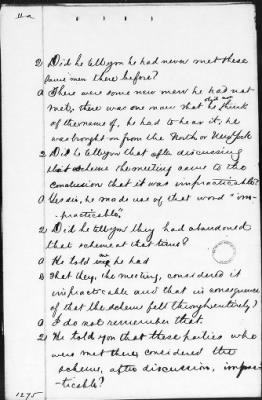 11-a
Q Did he tell you he had never met these
same men there before?
A There were some new men he had not
met; there was one man that he did not think
of the name of, he had to hear it, he
was brought on from the North or New York
Q Did he tell you that after discussing
that scheme the meeting came to the
conclusion that it was impracticable?
A Yes sir, he made use of that word "im-
practicable."
Q Did he tell you they had abandoned
that scheme at that time?
A He told me he had
Q That they, the meeting, considered it
impracticable and that in consequence
of that the scheme fell through entirely?
A I do not remember that.
Q He told you that these parties who
were met there considered the
scheme, after discussion, imprac-
ticable?
1295